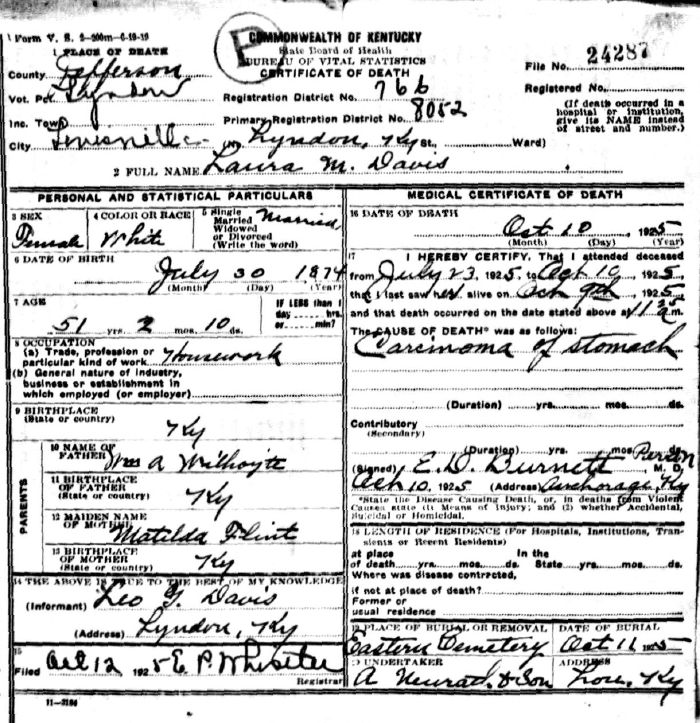 Form V. S. 2-200m-6-19-19
P
COMMONWEALTH OF KENTUCKY
State Board of Health
BUREAU OF VITAL STATISTICS
CERTIFICATE OF DEATH
1 PLACE OF DEATH
County Jefferson
Vot. Pct. Lyndon
Inc. Town
City Louisville
Registration District No. 766
Primary Registration District No. 8052
(No. Lyndon, Ky St., Ward)
File No. 24287
Registered No.
(If death occurred in a hospital or institution, give its NAME instead of street and number.)
2 FULL NAME Laura M. Davis
PERSONAL AND STATISTICAL PARTICULARS
3 SEX
Female
4 COLOR OR RACE
White
5 Single
Married
Widowed
or Divorced
(Write the word)
Married
6 DATE OF BIRTH
July 30 1874
(Month) (Day) (Year)
7 AGE
51 yrs. 2 mos. 10 ds.
IF LESS than 1
day hrs.
or min?
8 OCCUPATION
(a) Trade, profession or
particular kind of work Housework
(b) General nature of industry,
business or establishment in
which employed (or employer)
9 BIRTHPLACE
(State or country)
Ky
PARENTS
10 NAME OF
FATHER
Wm A Wilhoyte
11 BIRTHPLACE
OF FATHER
(State or country)
Ky
12 MAIDEN NAME
OF MOTHER
Matilda Flint
13 BIRTHPLACE
OF MOTHER
(State or country)
Ky
14 THE ABOVE IS TRUE TO THE BEST OF MY KNOWLEDGE
(Informant) Leo Davis
(Address) Lyndon, Ky
15
Filed Oct 12 1925 E. P. Whistler
Registrar
11-3184
MEDICAL CERTIFICATE OF DEATH
16 DATE OF DEATH
Oct 10, 1925
(Month) (Day) (Year)
17 I HEREBY CERTIFY, That I attended deceased
from July 23, 1925, to Oct 10, 1925
that I last saw her alive on Oct 9th, 1925
and that death occurred on the date stated above at
The CAUSE OF DEATH* was as follows:
Carcinoma of stomach
(Duration) yrs. mos. ds.
Contributory
(Secondary)
(Duration) yrs. mos. ds.
(Signed) E. D. Burnett M. D.
Oct 10, 1925 (Address) Anchorage, Ky
*State the Disease Causing Death, or, in deaths from Violent
Causes state (1) Means of Injury; and (2) whether Accidental,
Suicidal or Homicidal.
18 LENGTH OF RESIDENCE (For Hospitals, Institutions, Transients or Recent Residents)
at place In the
of death yrs. mos. ds. State yrs. mos. ds.
Where was disease contracted,
if not at place of death?
Former or
usual residence
19 PLACE OF BURIAL OR REMOVAL
Eastern Cemetery
DATE OF BURIAL
Oct 11, 1925
20 UNDERTAKER
A Neurath & Son
ADDRESS
Lou, Ky